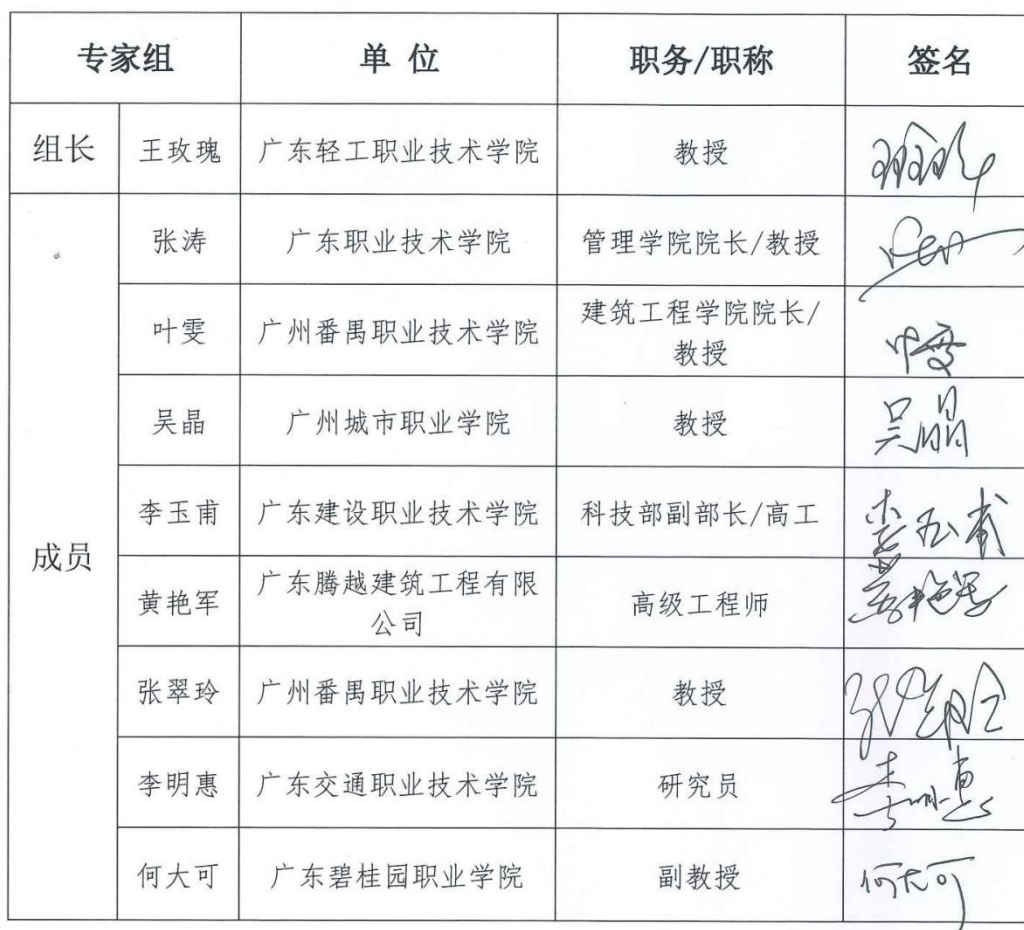 专家组 单 位 职务/职称 签名
组长 王玫瑰 广东轻工职业技术学院 教授
张涛 广东职业技术学院 管理学院院长/教授
叶雯 广州番禺职业技术学院 建筑工程学院院长/
教授 叶雯
吴晶 广州城市职业学院 教授 吴晶
李玉甫 广东建设职业技术学院 科技部副部长/高工 李玉甫
成员
黄艳军 广东腾越建筑工程有限
公司 高级工程师 黄艳军
张翠玲 广州番禺职业技术学院 教授 张翠玲
李明惠 广东交通职业技术学院 研究员 李明惠
何大可 广东碧桂园职业学院 副教授 何大可